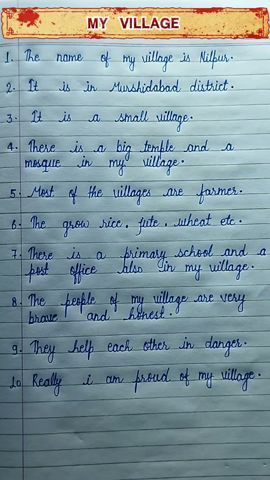 MY VILLAGE
1. The name of my village is Nilpur.
2. It is in Murshidabad district.
3. It is a small village.
4. There is a big temple and a
mosque in my village.
5. Most of the villages are farmer.
6. The grow rice, jute, wheat etc.
7. There is a primary school and a
post office also in my village.
8. The people of my village are very
brave and honest.
9. They help each other in danger.
10. Really i am proud of my village.